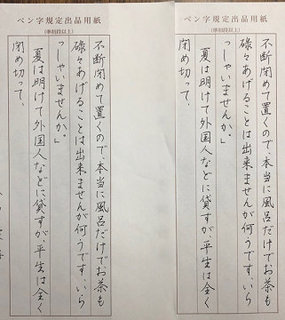 ペン字規定出品用紙
(準初段以上)
不断閉めて置くので、本当に風呂だけでお茶も
碌々あげることは出来ませんが何うです、いら
っしゃいませんか。」
夏は明けて外国人などに貸すが、平生は全く
閉め切って、
ペン字規定出品用紙
(準初段以上)
不断閉めて置くので、本当に風呂だけでお茶も
碌々あげることは出来ませんが何うです、いら
っしゃいませんか。」
夏は明けて外国人などに貸すが、平生は全く
閉め切って、